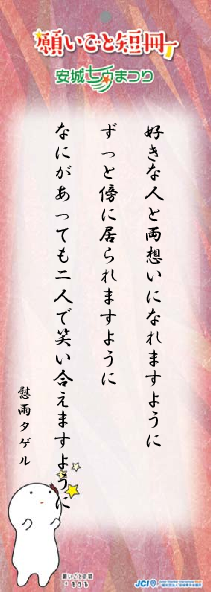 願いごと短冊
安城七夕まつり
好きな人と両想いになれますように
ずっと傍に居られますように
なにがあっても二人で笑い合えますように
慰雨タゲル
願いごと短冊
JCI